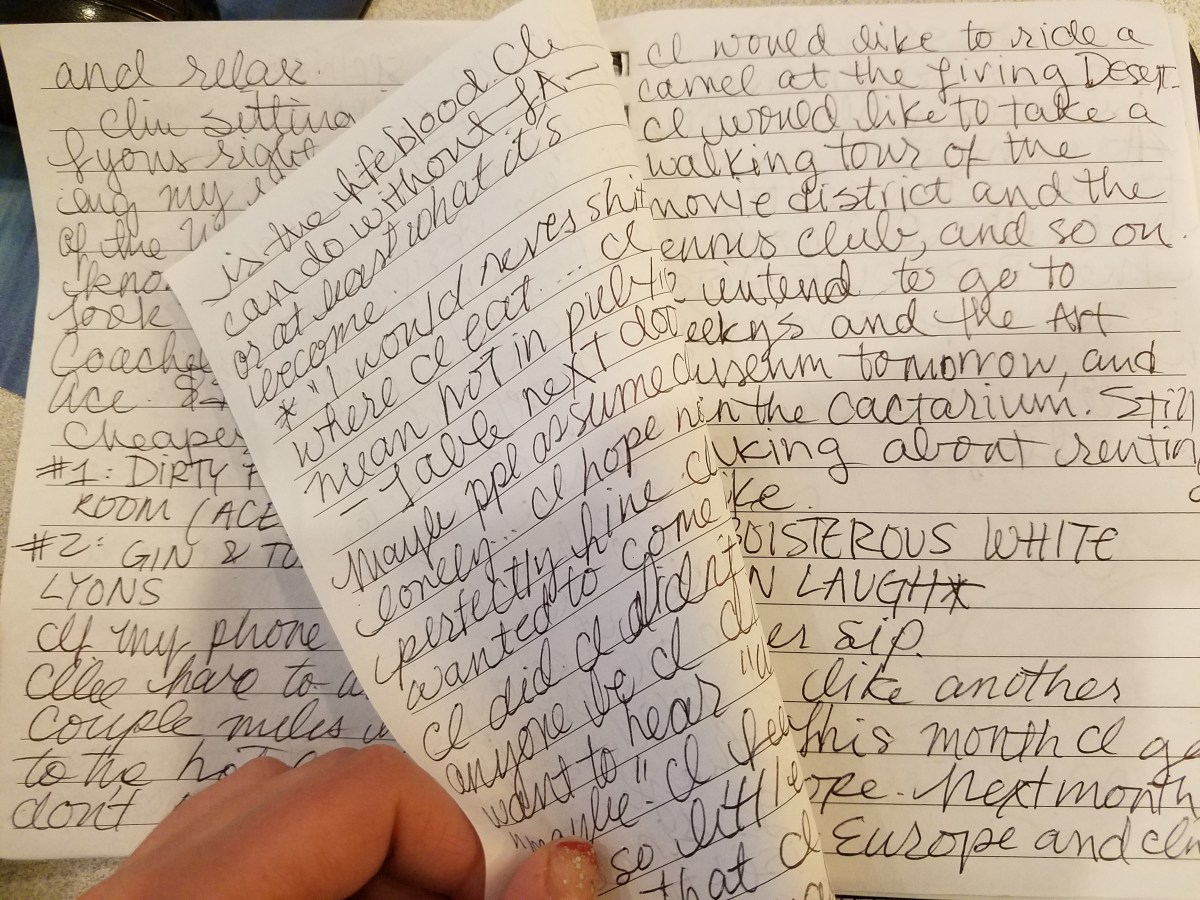 and relax.
I'm sitting
Lyons right
ing my
of the
kno
look
Coache
Ace.
Cheaper
#1: DIRTY
ROOM (ACE
#2: GIN & TO
LYONS
If my phone
I'll have to
couple miles
to the
don't
is the lifeblood. I
can do without LA-
or at least what it's
become.
* "I would never shit
where I eat... I
mean not in public"
- Table next door
Maybe ppl assume
lonely... I hope not
perfectly fine. I
wanted to come
I did. I didn't
anyone bc I
want to hear
"maybe." I feel
so little
that I
I would like to ride a
camel at the Living Desert.
I would like to take a
walking tour of the
movie district and the
ennis club, and so on.
intend to go to
eeky's and the Art
useum tomorrow, and
the Cactarium. Still
king about rentin
ke.
BOISTEROUS WHITE
N LAUGH*
er sip.
like another
This month I go
ope. Next month
Europe and